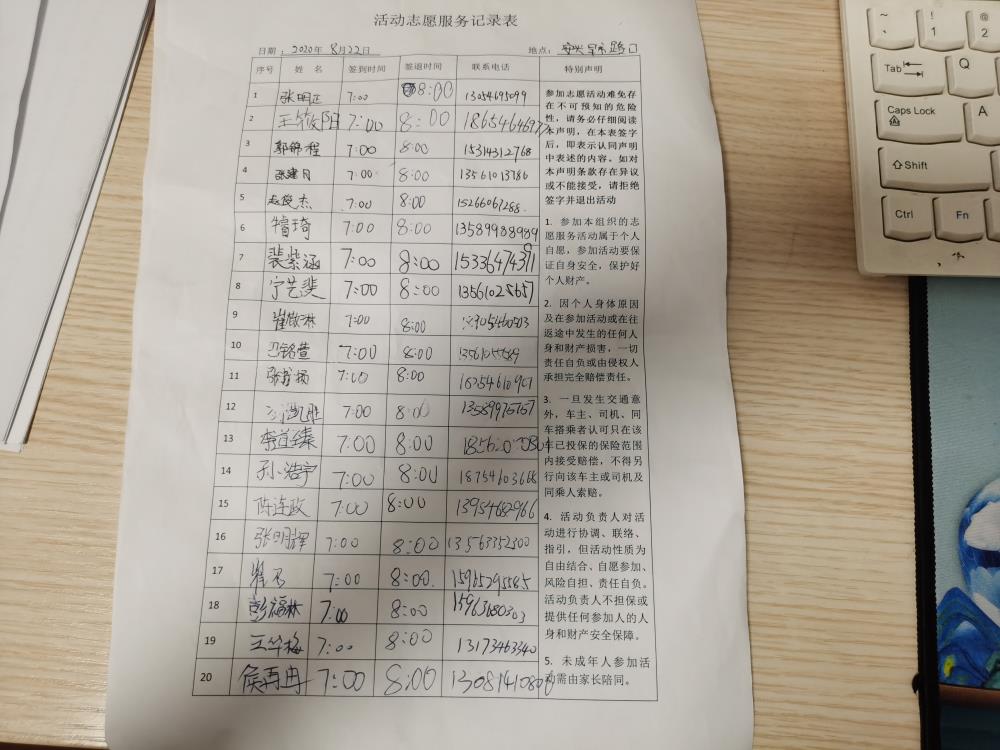 活动志愿服务记录表
日期：2020年 8月22日
地点：
路口
序号 姓 名 签到时间 签退时间 联系电话 特别声明
1 张明正 7:00 8:00 13054695099
2 王 阳 7:00 8:00
3 郭锦程 7:00 8:00 15314312768
4 张建月 7:00 8:00 13561013786
5 赵俊杰 7:00 8:00 15266067288
6 7:00 8:00 13589988989
7 裴紫涵 7:00 8:00 15336474311
8 宁艺斐 7:00 8:00 13561028657
9 崔敬林 7:00 8:00
10 7:00 8:00
11 7:00 8:00
12 7:00 8:00 13589975757
13 李道臻 7:00 8:00
14 孙浩宇 7:00 8:00 18754603668
15 陈连政 7:00 8:00 13954682966
16 张明辉 7:00 8:00 13563352500
17 7:00 8:00
18 彭福林 7:00 8:00 15963680303
19 王华梅 7:00 8:00 13173463340
20 侯再冉 7:00 8:00
参加志愿活动难免存
在不可预知的危险
性，请务必仔细阅读
本声明，在本表签字
后，即表示认同声明
中表述的内容。如对
本声明条款存在异议
或不能接受，请拒绝
签字并退出活动
1. 参加本组织的志
愿服务活动属于个人
自愿，参加活动要保
证自身安全，保护好
个人财产。
2. 因个人身体原因
及在参加活动或在往
返途中发生的任何人
身和财产损害，一切
责任自负或由侵权人
承担完全赔偿责任。
3. 一旦发生交通意
外，车主、司机、同
车搭乘者认可只在该
车已投保的保险范围
内接受赔偿，不得另
行向该车主或司机及
同乘人索赔。
4. 活动负责人对活
动进行协调、联络、
指引，但活动性质为
自由结合、自愿参加、
风险自担、责任自负。
活动负责人不担保或
提供任何参加人的人
身和财产安全保障。
5. 未成年人参加活
动需由家长陪同。
~ `
! 1
@ 2
Tab
Q
Caps Lock
A
Shift
Ctrl
Fn